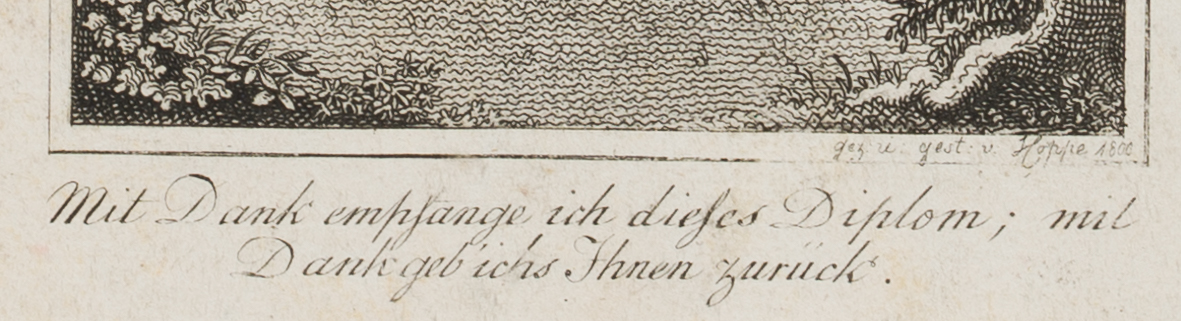 gez: u: gest: v. Hoppe 1800
Mit Dank empfange ich dieſes Diplom; mit
Dank geb' ich's Ihnen zurück.